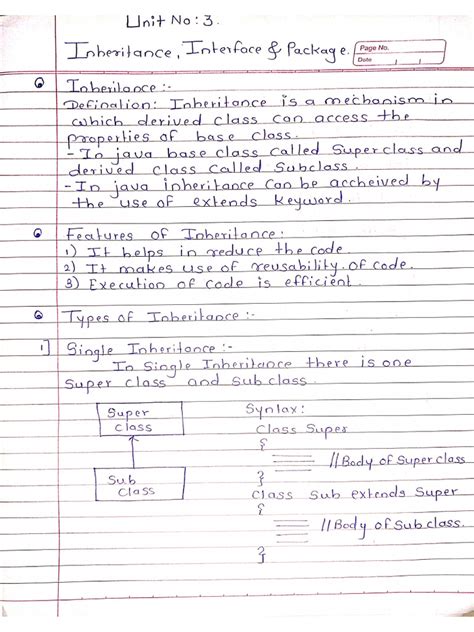 Unit No: 3.
Inheritance, Interface & Package.
Page No.
Date
Inheritance :-
Defination: Inheritance is a mechanism in
which derived class can access the
properties of base class.
- In java base class called Superclass and
derived class Called Subclass.
- In java inheritance can be accheived by
the use of extends Keyword.
Features of Inheritance:
1) It helps in reduce the code.
2) It makes use of reusability of code.
3) Execution of code is efficient.
Types of Inheritance :-
1] Single Inheritance :-
In Single Inheritance there is one
Super class and Sub class.
Super
class
Sub
Class
Syntax:
Class Super
{
//Body of Super class
}
Class Sub extends Super
{
//Body of Sub class.
}